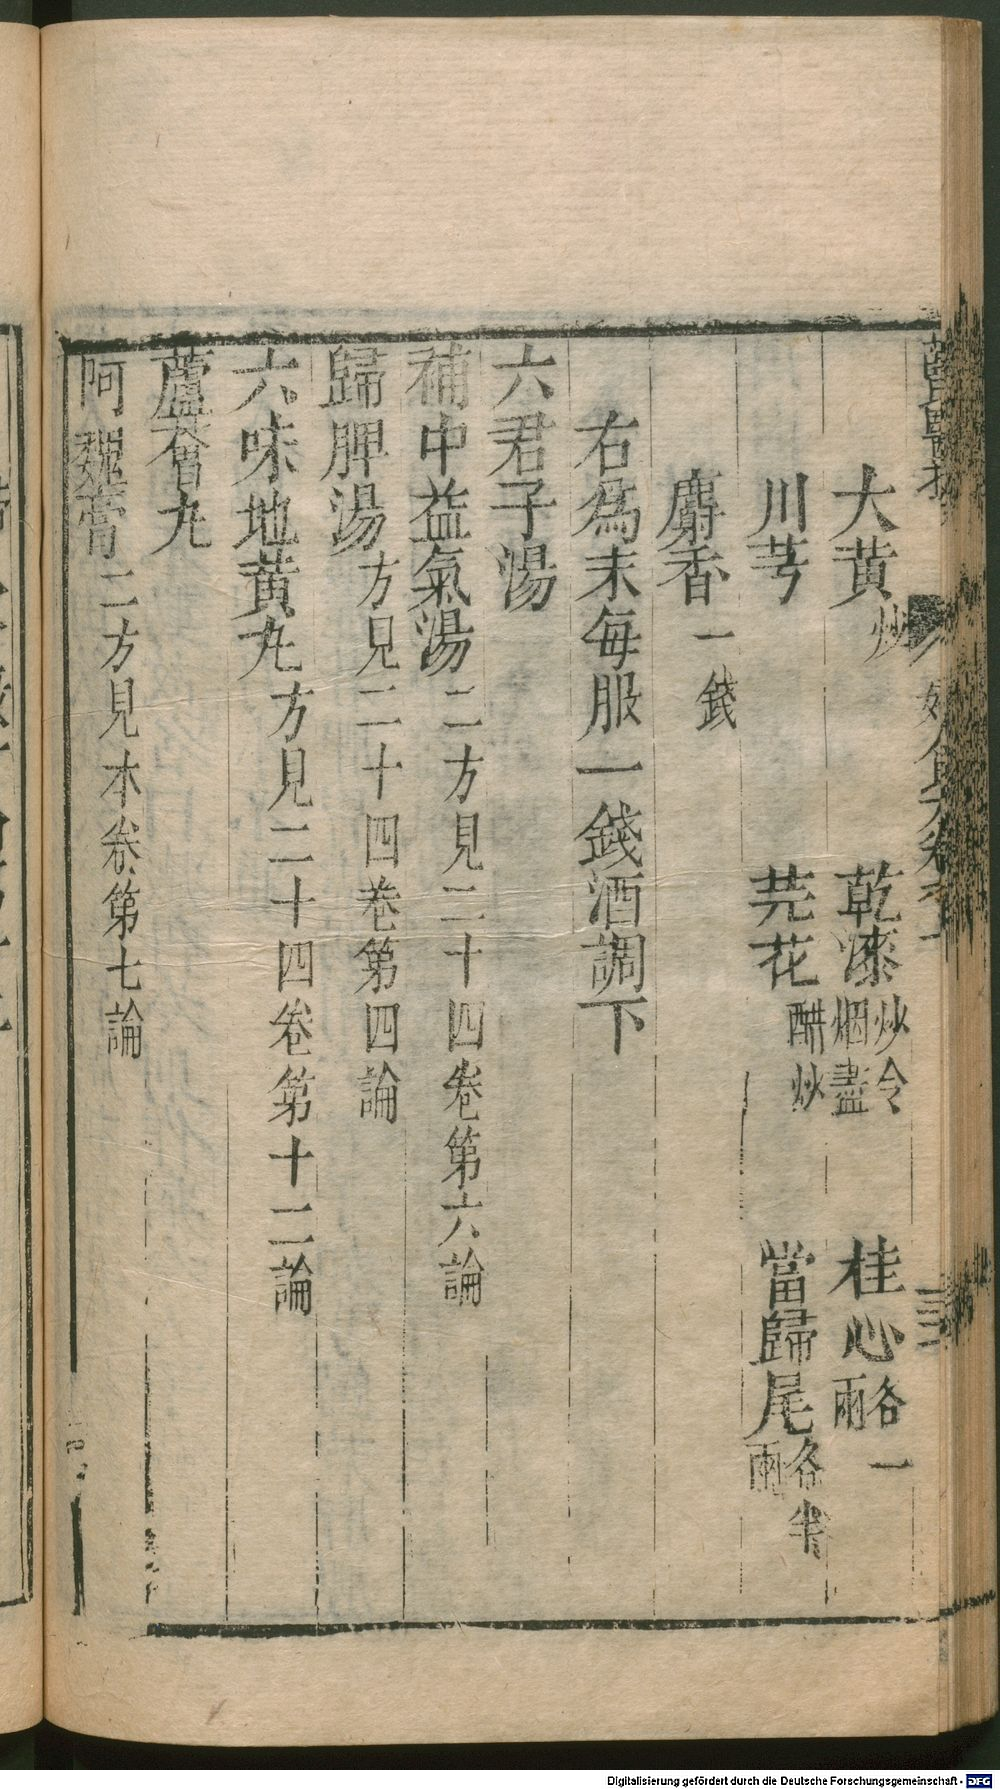 大黃炒　乾漆炒令烟盡　桂心各一兩
川芎　芫花醋炒　當歸尾各半兩
麝香一錢
右為末每服一錢酒調下
六君子湯
補中益氣湯二方見二十四卷第六論
歸脾湯方見二十四卷第四論
六味地黃丸方見二十四卷第十二論
蘆薈丸
阿魏膏二方見本卷第七論
Digitalisierung gefördert durch die Deutsche Forschungsgemeinschaft - DFG